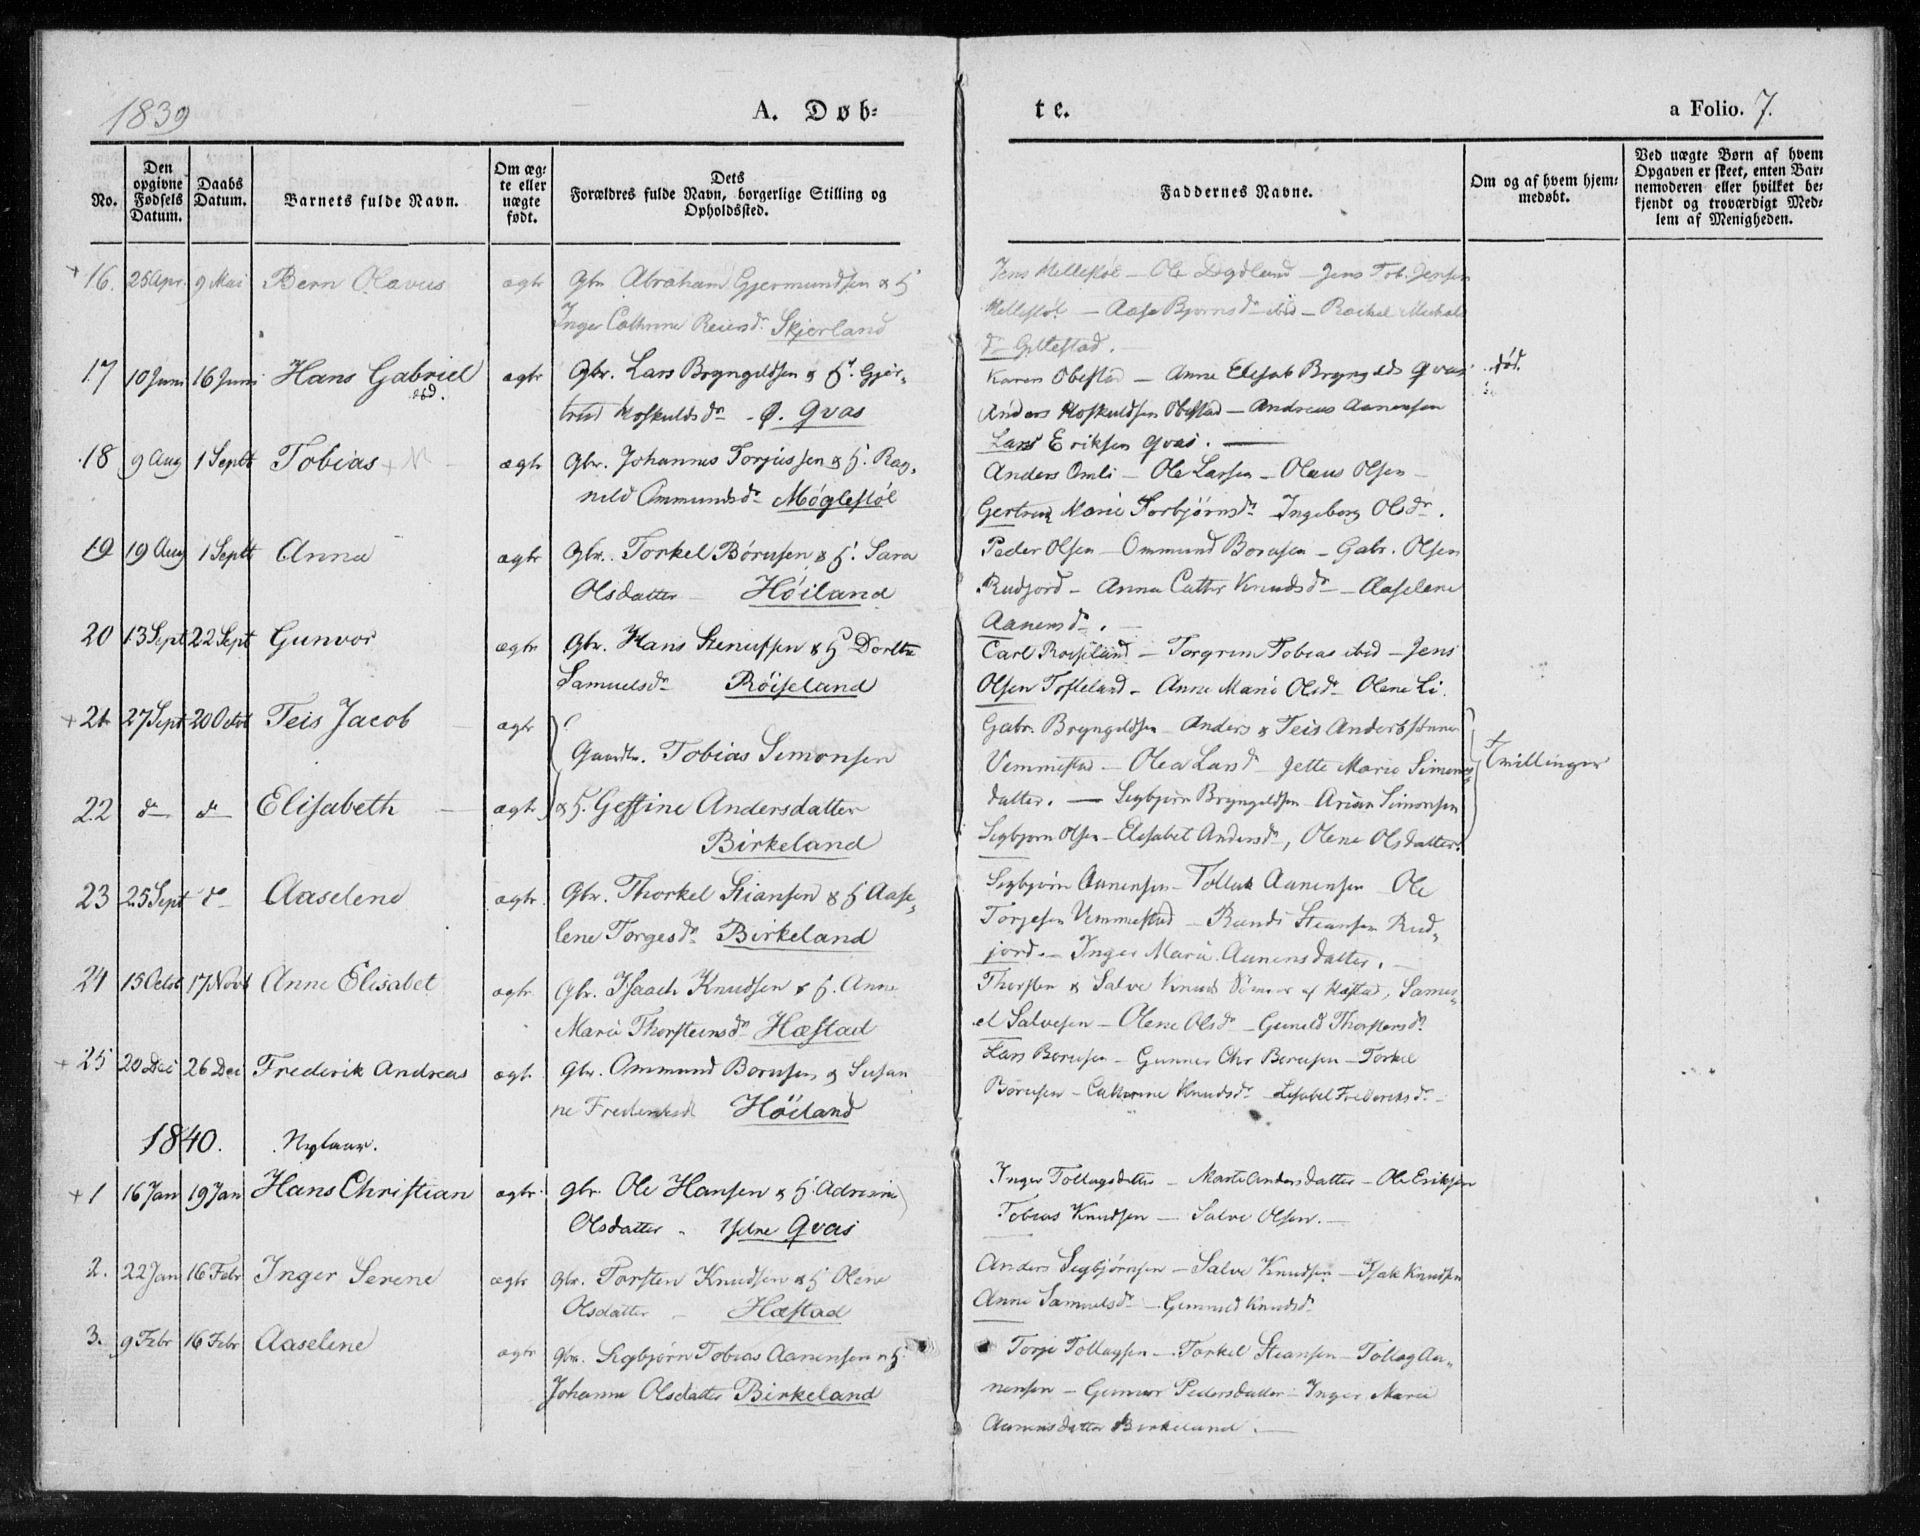 1839
A. Døb-
te.
a Folio. 7.
No.
Den opgivne Fødsels Datum.
Daabs Datum.
Barnets fulde Navn.
Om ægte eller uægte født.
Dets Forældres fulde Navn, borgerlige Stilling og Opholdssted.
Faddernes Navne.
Om og af hvem hjemmedøbt.
Ved uægte Børn af hvem Opgaven er skeet, enten Barnemoderen eller hvilket bekjendt og troværdigt Medlem af Menigheden.
+ 16. 25 Apr. 9 Mai Bern Olavus ægte Gbr. Abraham Gjermundsen & H
Inger Cathrine Reiersdr. Skjerland
Jens Mellestøl – Ole Dydland – Jens Tob. Jensen
Mellestøl – Aase Bjornsdr ibid – Rachel Michals
dr Gyllestad.
17 10 Juni 16 Juni Hans Gabriel ægte Gbr. Lars Bryngeldsen & H. Gjer-
død.
trud Hoskuldsdr – Ø. Qvas
Karen Obestad – Anne Elisab Bryngelds Qvas død.
Anders Hoskuldsen Obestad – Andreas Aanensen
Lars Eriksen Qvas.
18 9 Aug 1 Septb Tobias + ægte Gbr. Johannes Torjussen & H. Rag-
nild Ommundsdr Møglestøl
Anders Omli – Ole Larsen – Olaus Olsen –
Gertrud Marie Torbjørnsdr Ingeborg Olsdr.
19 19 Aug 1 Septb Anna ægte Gbr. Torkel Børusen & H. Sara
Olsdatter – Höiland
Peder Olsen – Ommund Borusen – Gabr. Olsen
Rudjord – Anna Cathr Knudsdr – Aaselene
Aanensdr.
20 13 Sept 22 Sept Gunvor ægte Gbr. Hans Stenersen & H Dorthe
Samuelsdr Röiseland
Carl Roiseland – Torgrim Tobias ibid – Jens
Olsen Tofteland – Anne Marie Olsdr Olene Li.
+ 21 27 Sept 20 Octob Teis Jacob ægte
Gaardbr. Tobias Simonsen
Gabr. Bryngeldsen – Anders & Teis Anders Sønner
Vemmestad – Olea Larsdr – Jette Marie Simons- Tvillinger
22 d d Elisabeth – ægte & H. Gesine Andersdatter
Birkeland
datter. – Segbjørn Bryngeldsen – Arian Simonsen
Segbjorn Olsen – Elisabet Andersdr, Olene Olsdatter.
23 25 Sept do Aaselene ægte Gbr. Thorkel Stiansen & H Aase-
lene Torgesdr Birkeland
Segbjørn Aanensen – Tollak Aanensen – Ole
Torjesen Vemmestad – Stiansen Rud-
jord. – Inger Marie Aanensdatter.
24 15 Octob 17 Novb Anne Elisabet ægte Gbr. Isaach Knudsen & H. Anne
Marie Thorsteinsdr Hæstad
Thorsten & Salve Knuds Sønner af Hæstad, Samu-
el Salvesen – Olene Olsdr – Gunild Thorstensdr
+ 25 20 Dec 26 Dec Frederik Andreas ægte Gbr. Ommund Borusen & Susan
ne Frederiksd Höiland
Lars Borusen – Gunner Chr Borusen – Torkel
Børusen – Cathrine Knudsdr – Lisabel Frederiksdr
1840. Nytaar.
+ 1 16 Jan 19 Jan Hans Christian ægte gbr. Ole Hansen & H. Adrisine
Olsdatter – Ydre Qvas
Inger Tollagsdatter – Marte Andersdatter – Ole Eriksen
Tobias Knudsen – Salve Olsen.
2. 22 Jan 16 Febr Inger Serene ægte Gbr. Torsten Knudsen & H Olene
Olsdatter – Hæstad
Anders Segbjørnsen – Salve Knudsen – Isak Knudsen
Anne Samuelsdr – Gunuld Knudsdr
3. 9 Febr 16 Febr Aaselene ægte gbr. Segbjørn Tobias Aanensen & H.
Johanne Olsdatter Birkeland
Torje Tollagsen – Torkel Stiansen – Tollag Aa-
nensen – Gunnor Pedersdatter – Inger Marie
Aanensdatter Birkeland.